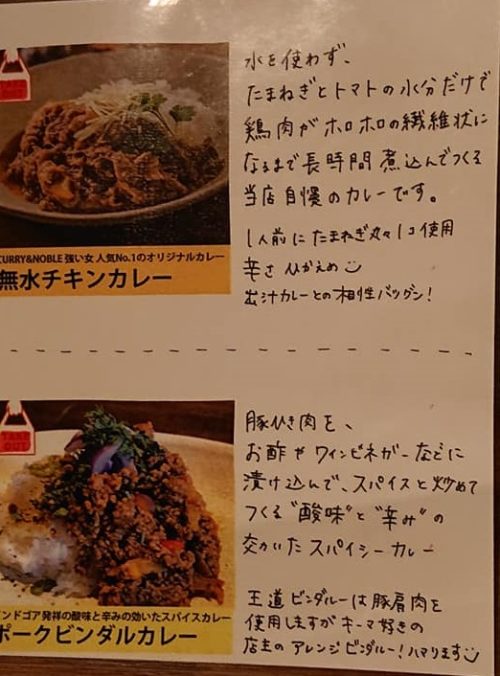 TAKE OUT
CURRY&NOBLE 強い女 人気No.1のオリジナルカレー
無水チキンカレー
水を使わず、
たまねぎとトマトの水分だけで
鶏肉がホロホロの繊維状に
なるまで長時間煮込んでつくる
当店自慢のカレーです。
1人前にたまねぎ丸々1コ使用
辛さひかえめ
出汁カレーとの相性バツグン!
TAKE OUT
インドゴア発祥の酸味と辛みの効いたスパイスカレー
ポークビンダルカレー
豚ひき肉を、
お酢やワインビネガーなどに
漬け込んで、スパイスと炒めて
つくる"酸味"と"辛み"の
交わいたスパイシーカレー
王道ビンダルーは豚肩肉を
使用しますがキーマ好きの
店主のアレンジビンダルー!ハマります